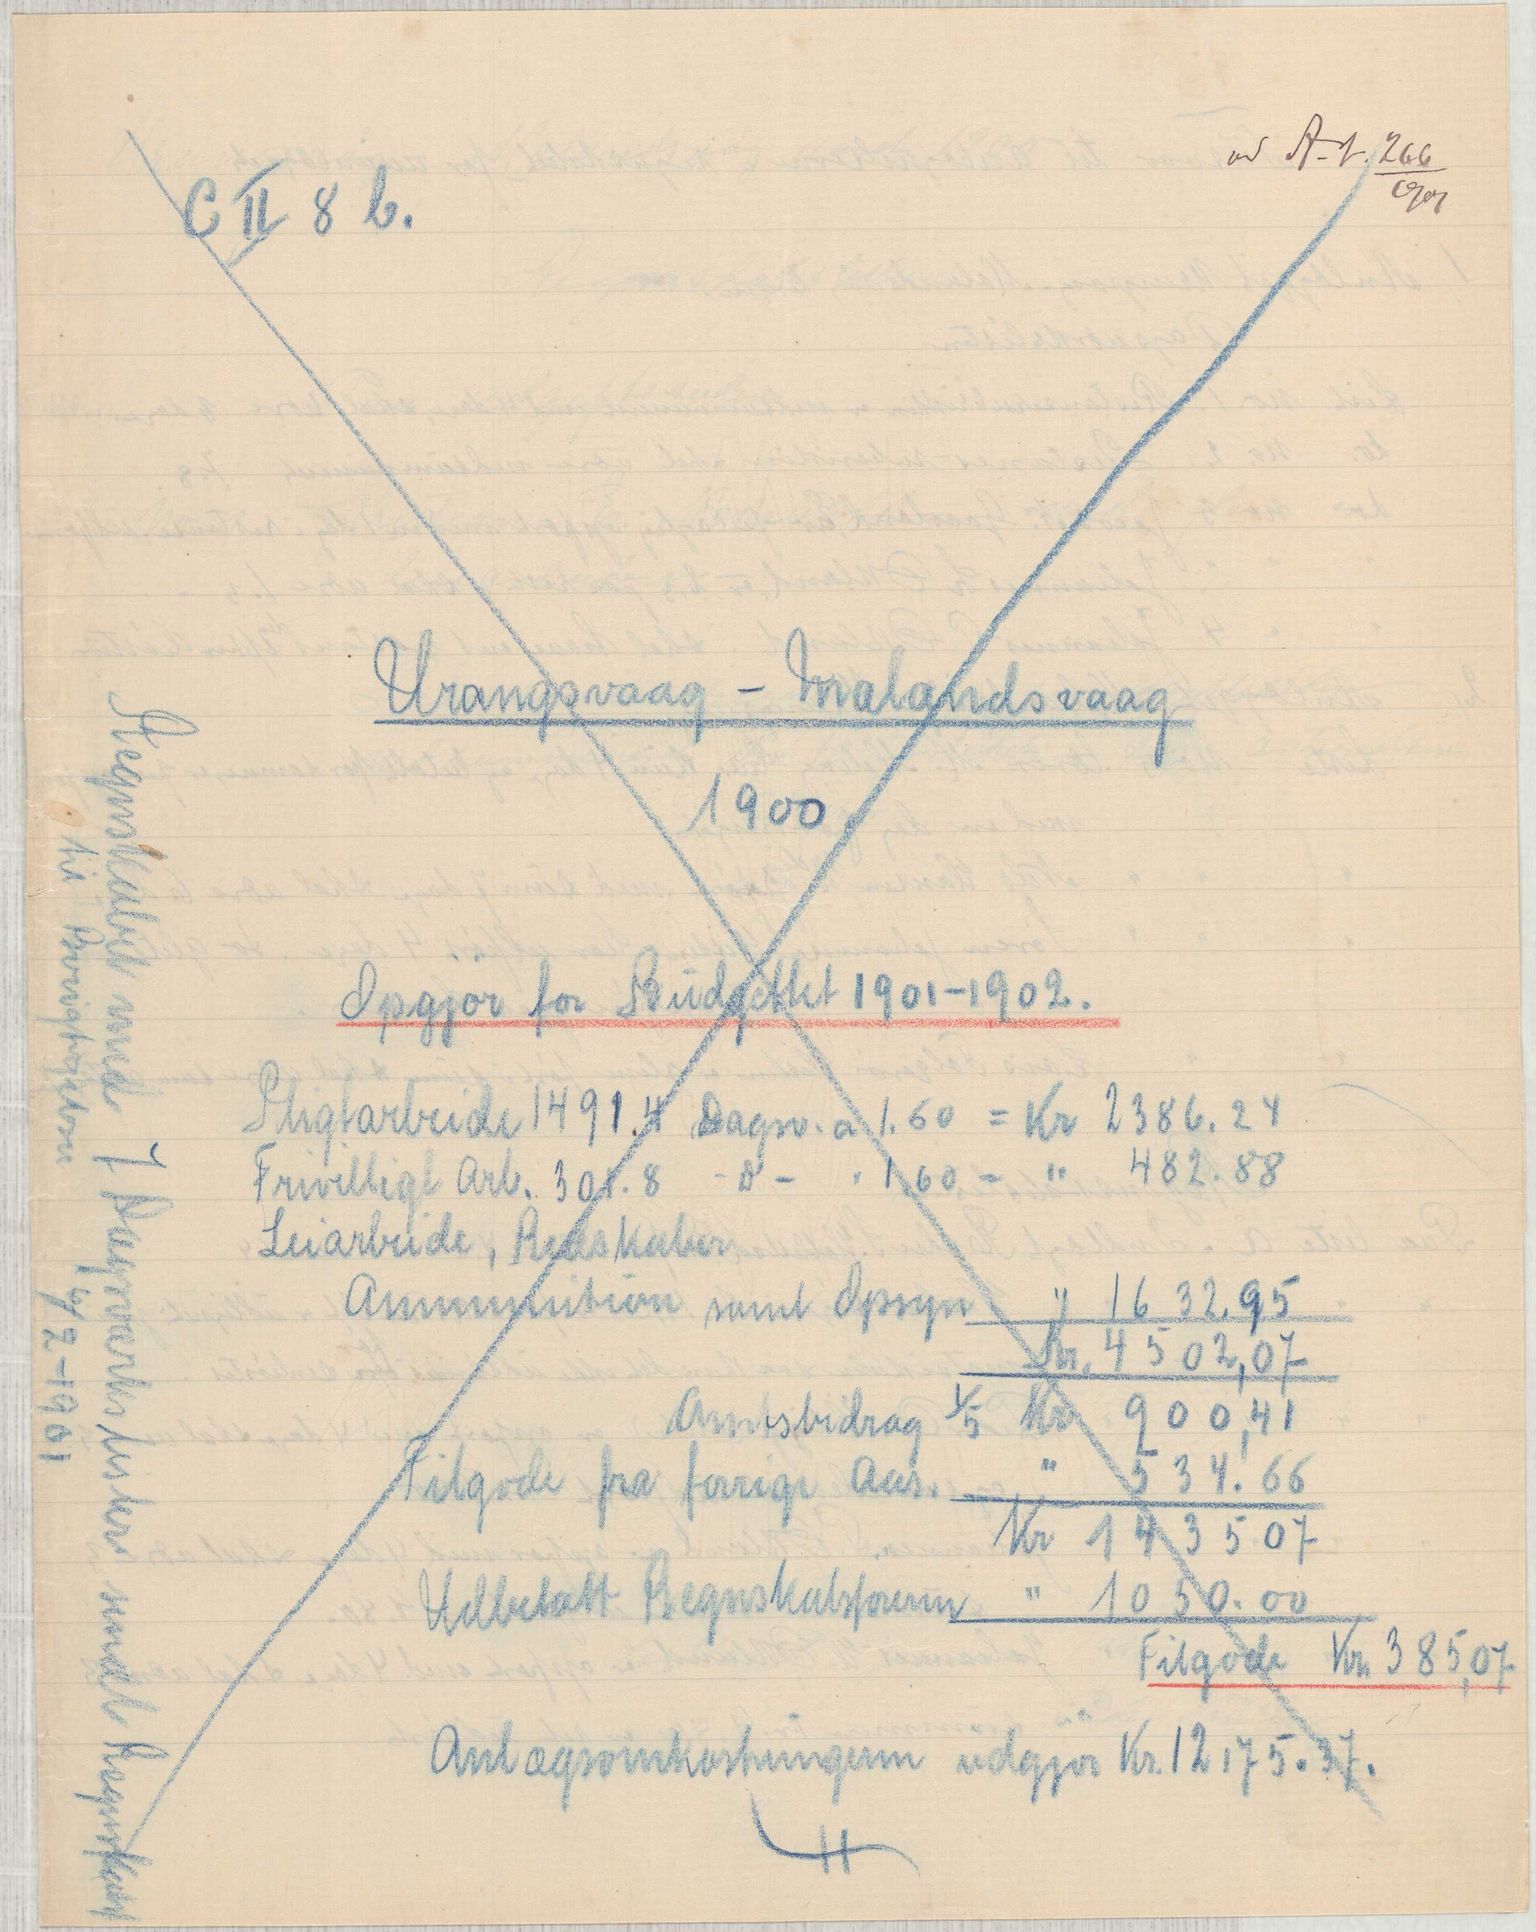 ad A-J. 266
1901
C II 8 b.
Urangsvaag - Malandsvaag
1900.
Opgjør for Büdgettet 1901-1902.
Pligtarbeide 1491.4 Dagsv. a 1.60 = Kr 2386.24
Frivilligt Arb. 301.8 -D- " 1,60 - " 482.88
Leiarbeide, Redskaber
Ammunition samt Opsyn " 1632.95
Kr. 4502,07
Amtsbidrag 1/5 Kr 900,41
Tilgode fra forrige Aar. " 534.66
Kr 143507
Udbetalt Regnskabsføreren " 1050.00
Tilgode Kr. 385,07
Anlægsomkostningerne udgjør Kr. 12175.37.
Regnskabet med 7 Dagsverkslister sendt Regnskabsf
til
16/2-1901